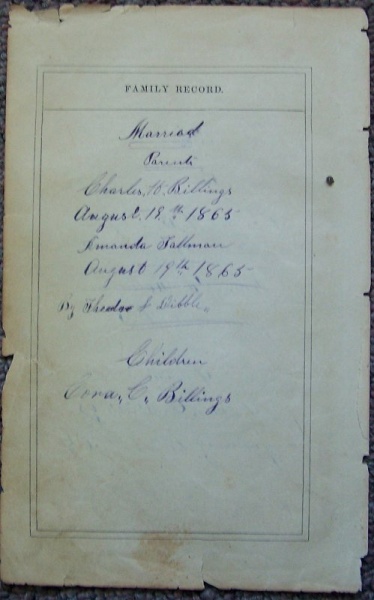 FAMILY RECORD.
Married
Parents
Charles. H. Billings
August. 19.th 1865
Amanda Tallman
August 19th 1865
By Theodor S Dibble.
Children
Cora, C, Billings